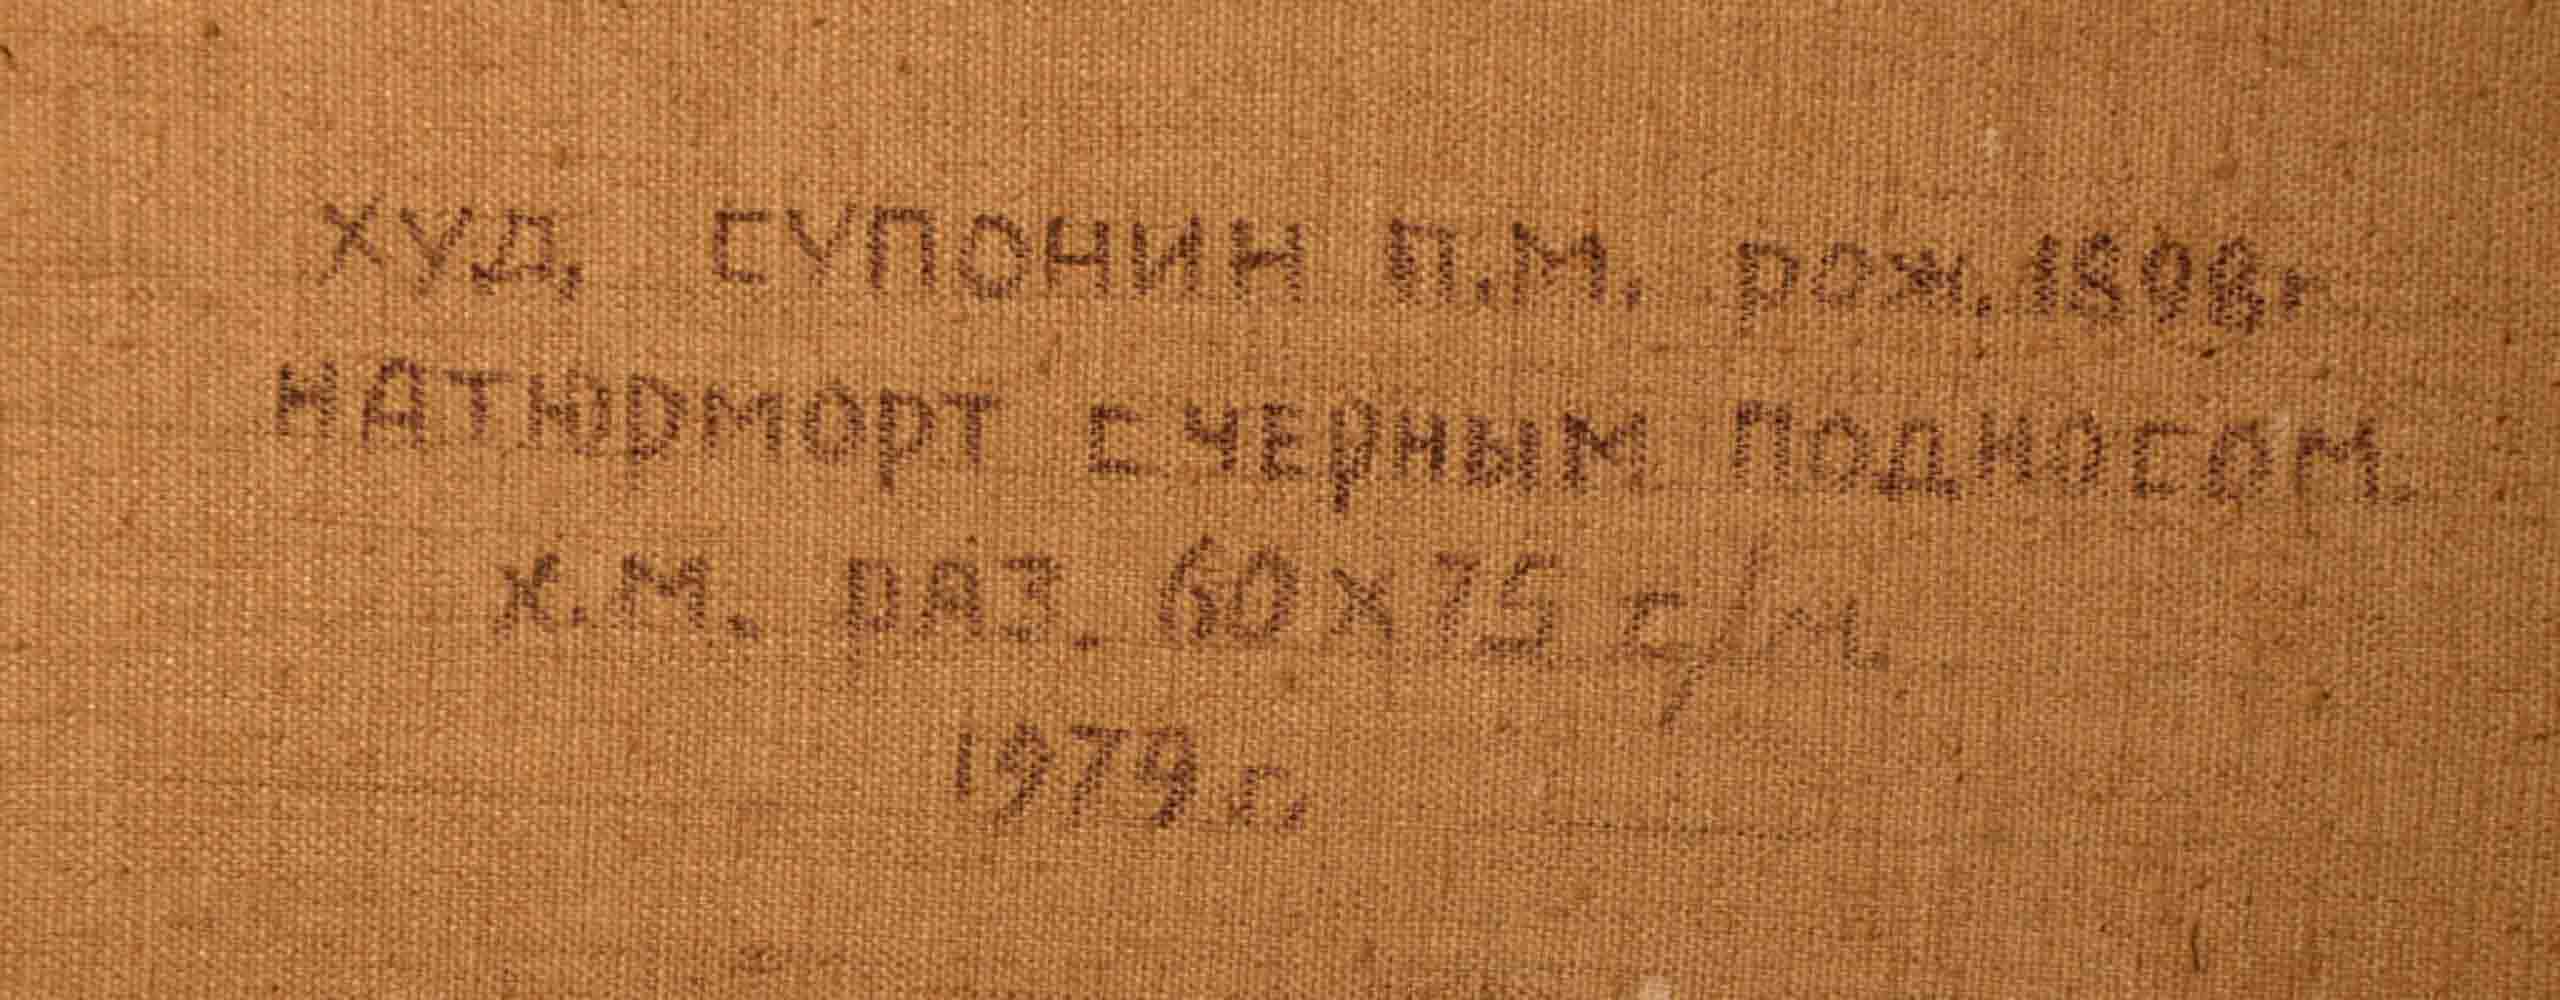 ХУД. СУПОНИН П.М. рож.
НАТЮРМОРТ С ЧЕРНЫМ ПОДНОСОМ.
Х.М. РАЗ. 60х75 с/м.
1979 г.